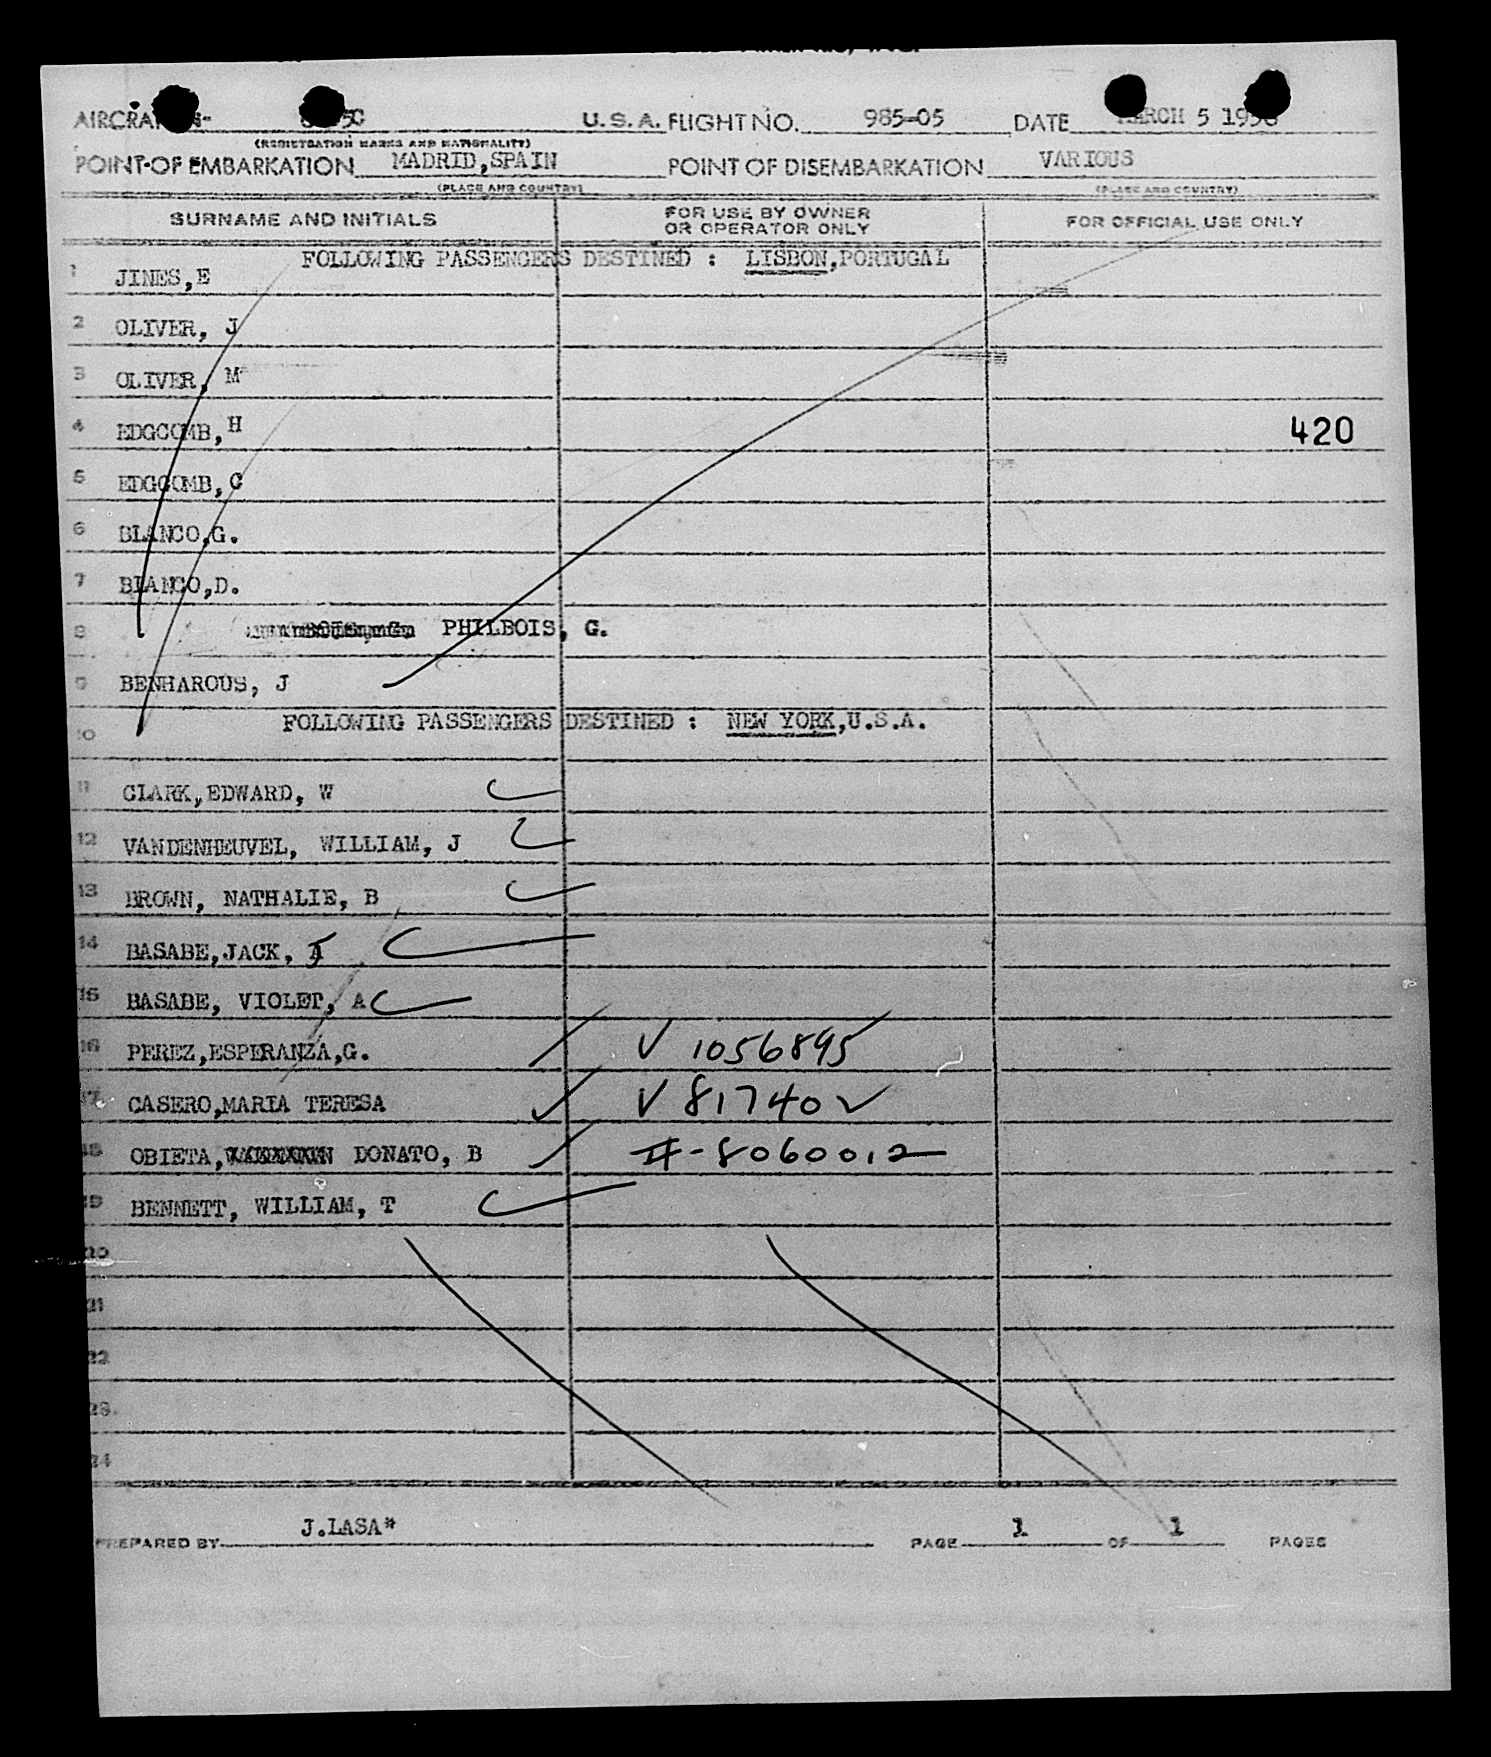 U.S.A. FLIGHT NO. 985-05 DATE MARCH 5
(REGISTRATION MARKS AND NATIONALITY)
POINT OF EMBARKATION MADRID,SPAIN POINT OF DISEMBARKATION VARIOUS
(PLACE AND COUNTRY) (PLACE AND COUNTRY)
SURNAME AND INITIALS FOR USE BY OWNER OR OPERATOR ONLY FOR OFFICIAL USE ONLY
FOLLOWING PASSENGERS DESTINED : LISBON,PORTUGAL
1 JINES,E
2 OLIVER, J
3 OLIVER, M
4 EDGCOMB,H 420
5 EDGCOMB,C
6 BLANCO,G.
7 BLANCO,D.
8 PHILBOIS, G.
9 BENHAROUS, J
FOLLOWING PASSENGERS DESTINED : NEW YORK,U.S.A.
10
11 CLARK,EDWARD, W
12 VANDENHEUVEL, WILLIAM, J
13 BROWN, NATHALIE, B
14 BASABE,JACK,
15 BASABE, VIOLET, A
16 PEREZ,ESPERANZA,G. V 1056895
17 CASERO,MARIA TERESA V 81740
18 OBIETA, DONATO, B #-8060012
19 BENNETT, WILLIAM, T
20
21
22
23.
24
PREPARED BY J.LASA* PAGE 1 OF 1 PAGES